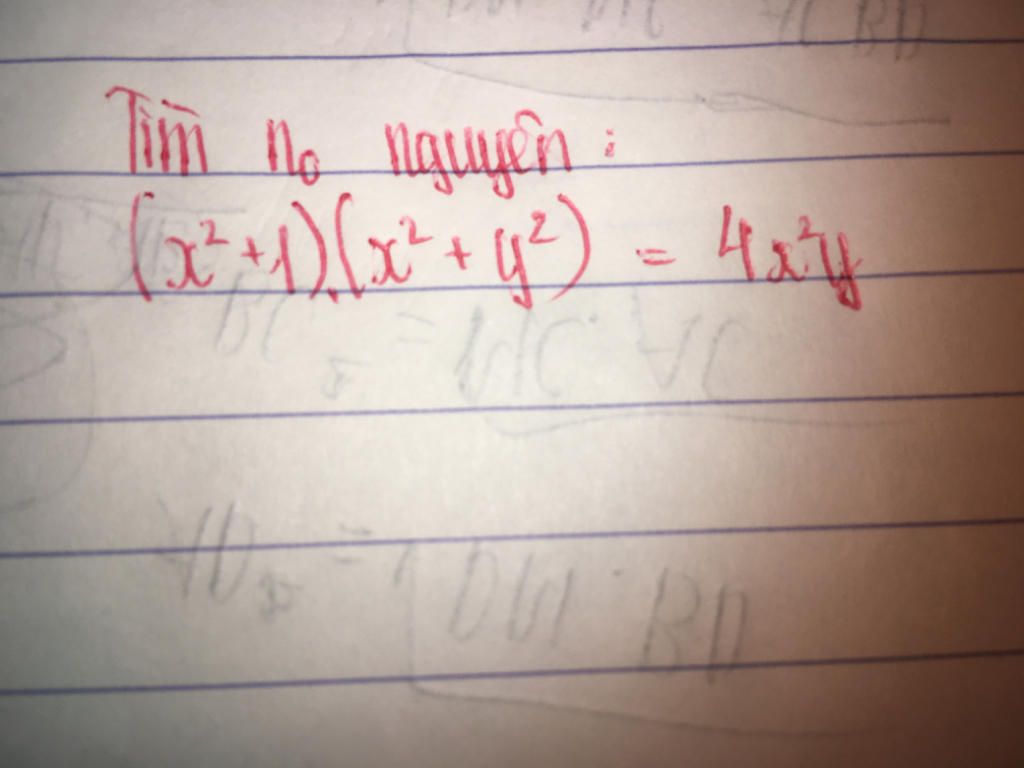 Tìm no nguyên :
(x² + 1).(x² + y²) = 4x²y